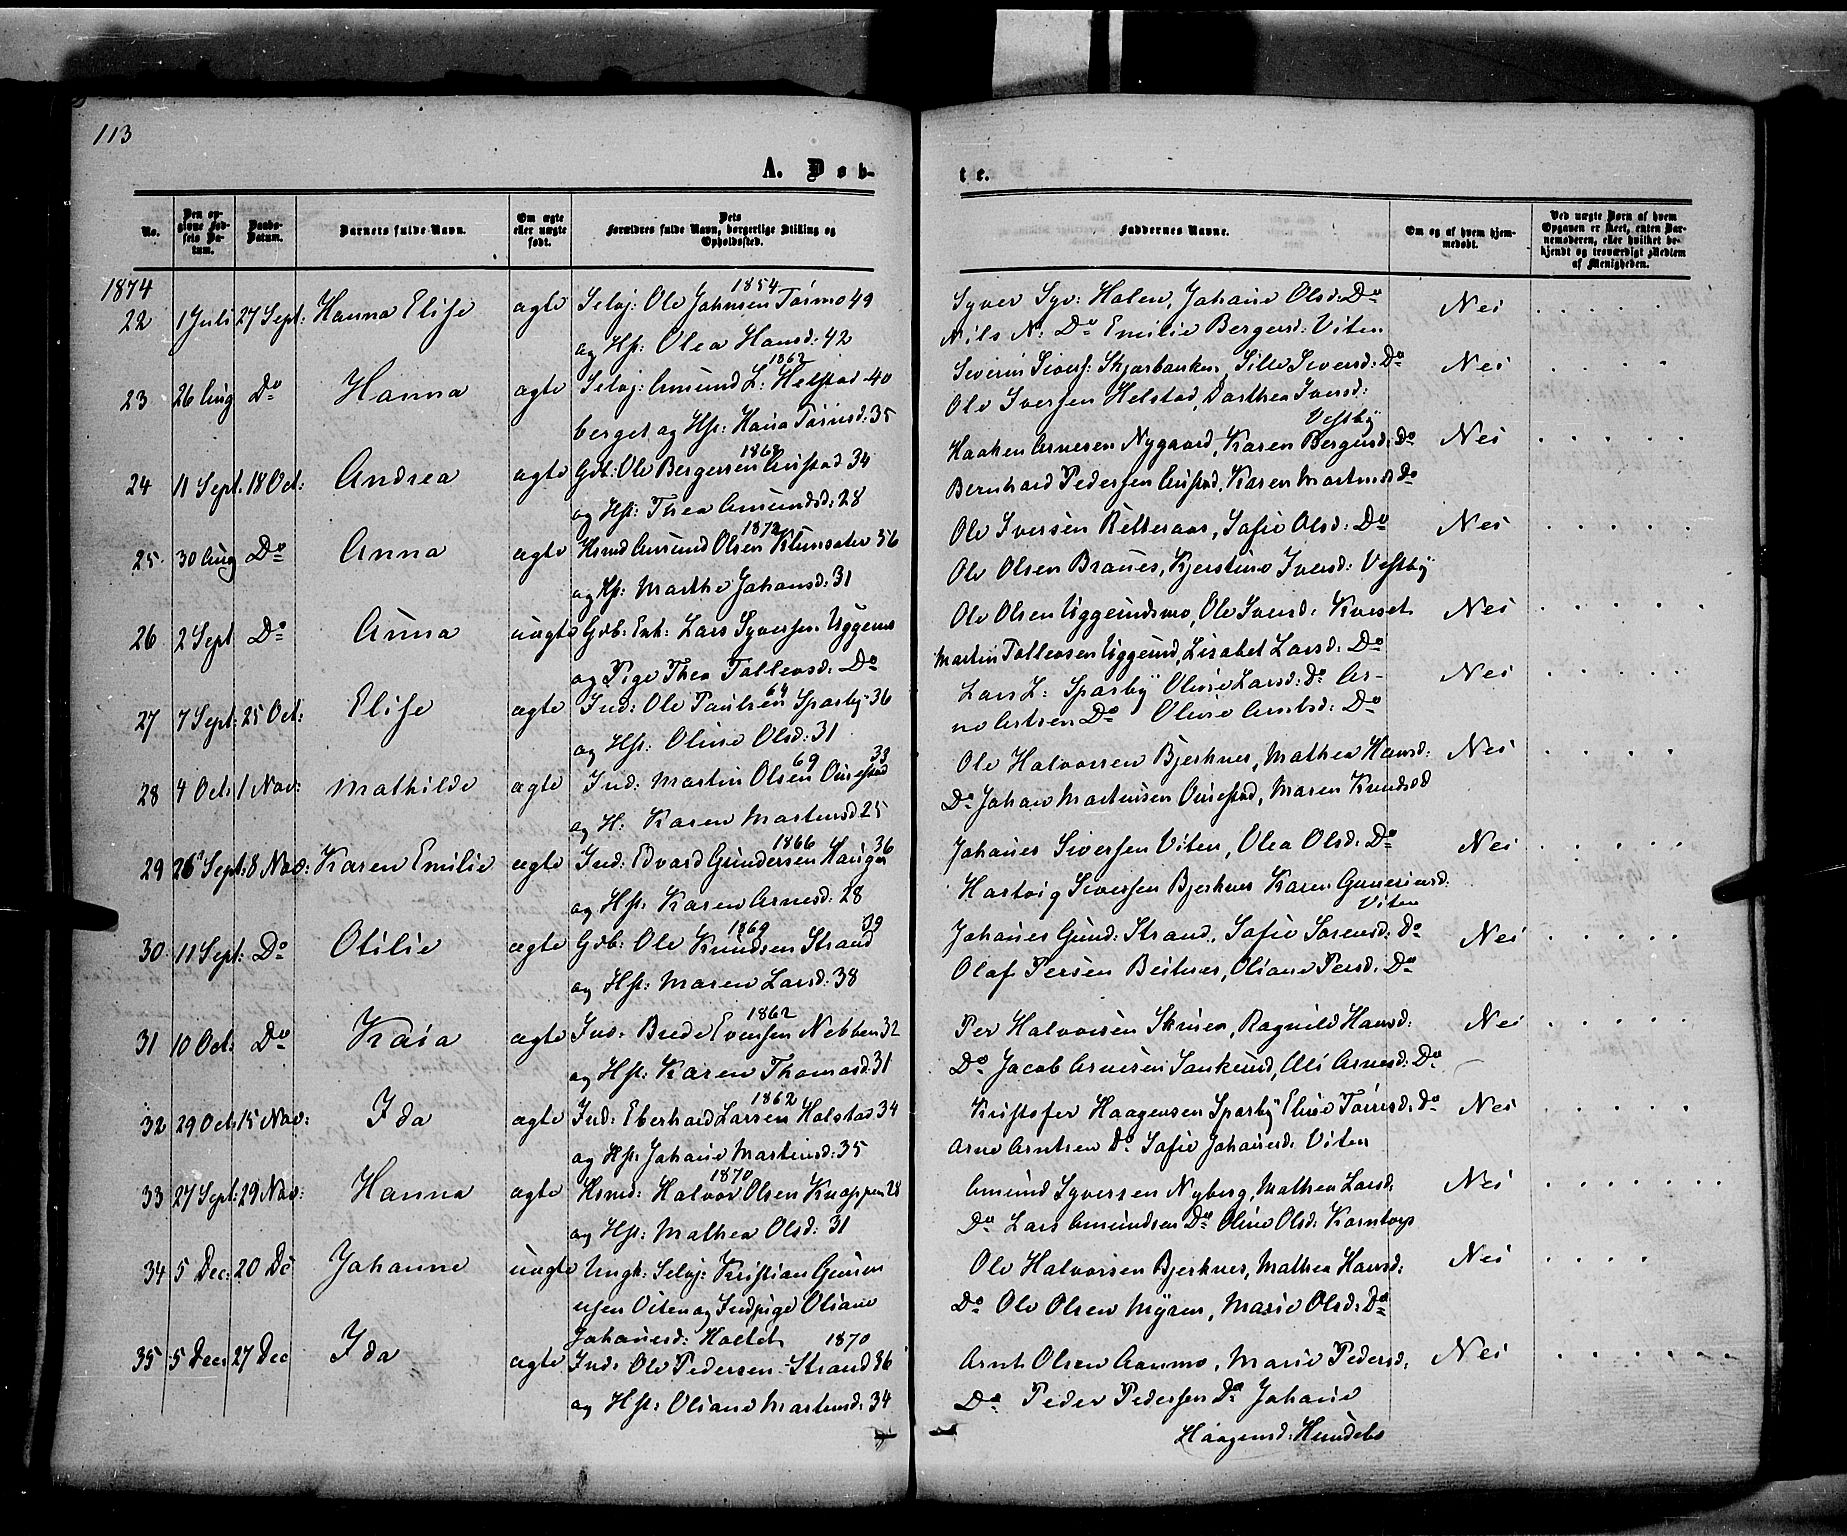 113
A. Døb-
te.
No.
Den opgivne Fødsels Datum.
Daabs-Datum.
Barnets fulde Navn.
Om ægte eller uægte født.
Dets Forældres fulde Navn, borgerlige Stilling og Opholdssted.
Faddernes Navne.
Om og af hvem hjemmedøbt.
Ved uægte Børn af hvem Opgaven er skeet, enten Barnemoderen, eller hvilket bekjendt og troværdigt Medlem af Menigheden.
1874
22 1 Juli 27 Sept: Hanna Elise ægte Selvj: Ole Johnsen Tørmo 49 1854
og Hst: Olea Hansd: 42
Syver Syv: Halen, Johane Olsd: Do Nei
Nils N: Do Emilie Bergersd: Viten
23 26 Aug Do Hanna ægte Selvj: Amund L: Helstad- 40 1862
berget og Hst: Hana Tørrisd: 35
Siverin Sivers: Skjærbanken, Sille Siversd: Do Nei
Ole Iversen Helstad, Dorthea Iversd: Vestby
24 11 Sept: 18 Oct: Andrea ægte Gdb: Ole Bergersen Austad 34 1868
og Hst: Thea Amundsd: 28
Haaken Arnesen Nygaard, Karen Bergersd: Do Nei
Bernhard Pedersen Austad, Karen Martinsd Do
25 30 Aug Do Anna ægte Hsmd Amund Olsen 36 1872
og Hst: Marthe Johansd: 31
Ole Iversen Sofie Olsd: Do Nei
Ole Olsen Branes, Kjerstine Iversd: Vestby
26 2 Sept Do Anna uægte Gdb: Enk: Lars Syversen Uggerud
og Pige Thea Tollevsd: Do
Ole Olsen Uggerudsmo, Ole Iversd: Kveset Nei
Martin Tollevsen Uggerud, Lisabet Larsd: Do
27 7 Sept: 25 Oct: Elise ægte Ind: Ole Paulsen Sparby 36 64
og Hst: Oline Olsd: 31
Lars L: Sparby Oline Larsd: Do Ar- Nei
ne Arntsen Do Oline Arntsd: Do
28 4 Oct: 1 Nov: Mathilde ægte Ind: Martin Olsen Onsstad 33 69
og H: Karen Martinsd 25
Ole Halvorsen Bjerknes, Mathea Hansd: Nei
Do Johan Martinsen Onsstad, Maren Knudsd
29 26 Sept: 8 Nov: Karen Emilie ægte Ind: Edvard Gundersen Hauger 36 1866
og Hst: Karen Arnesd: 28
Johanes Siversen Viten, Olea Olsd: Do Nei
Hartvig Siversen Bjerknes Karen Guneriusd: Viten
30 11 Sept: Do Otilie ægte Gdb: Ole Knudsen Strand 39 1869
og Hst: Maren Larsd: 38
Johanes Gund: Strand, Sofie Sørensd: Do Nei
Olaf Persen Beitnes, Oliane Persd: Do
31 10 Oct: Do Kaia ægte Ind: Brede Evensen Nebben 32 1862
og Hst: Karen Thomasd: 31
Per Halvorsen Ragnild Hansd: Nei
Do Jacob Arnesen Sankerud, Arnesd: Do
32 29 Oct: 15 Nov: Ida ægte Ind: Eberhard Larsen Holstad 34 1862
og Hst: Johane Martinsd: 35
Kristofer Haagensen Sparby Eline Tørrisd: Do Nei
Arne Arntsen Do Sofie Johanesd: Viten
33 27 Sept: 29 Nov: Hanna ægte Hsmd: Halvor Olsen Knappen 28 1870
og Hst: Mathea Olsd: 31
Amund Syversen Nyberg, Mathea Larsd: Nei
Do Lars Amundsen Do Oline Olsd: Korntorp
34 5 Dec: 20 De Johanne uægte Ungk: Selvj: Kristian Guneri-
usen Viten og Indpige Oliane
Johanesd: Holtet
Ole Halvorsen Bjerknes, Mathea Hansd: Nei
Do Ole Olsen Myren, Marie Olsd: Do
35 5 Dec: 27 Dec Ida ægte Ind: Ole Pedersen Strand 36 1870
og Hst: Oliane Martinsd: 34
Arnt Olsen Aanmo, Marie Pedersd: Nei
Do Peder Pedersen Do Johane
Haagensd: Hundebo